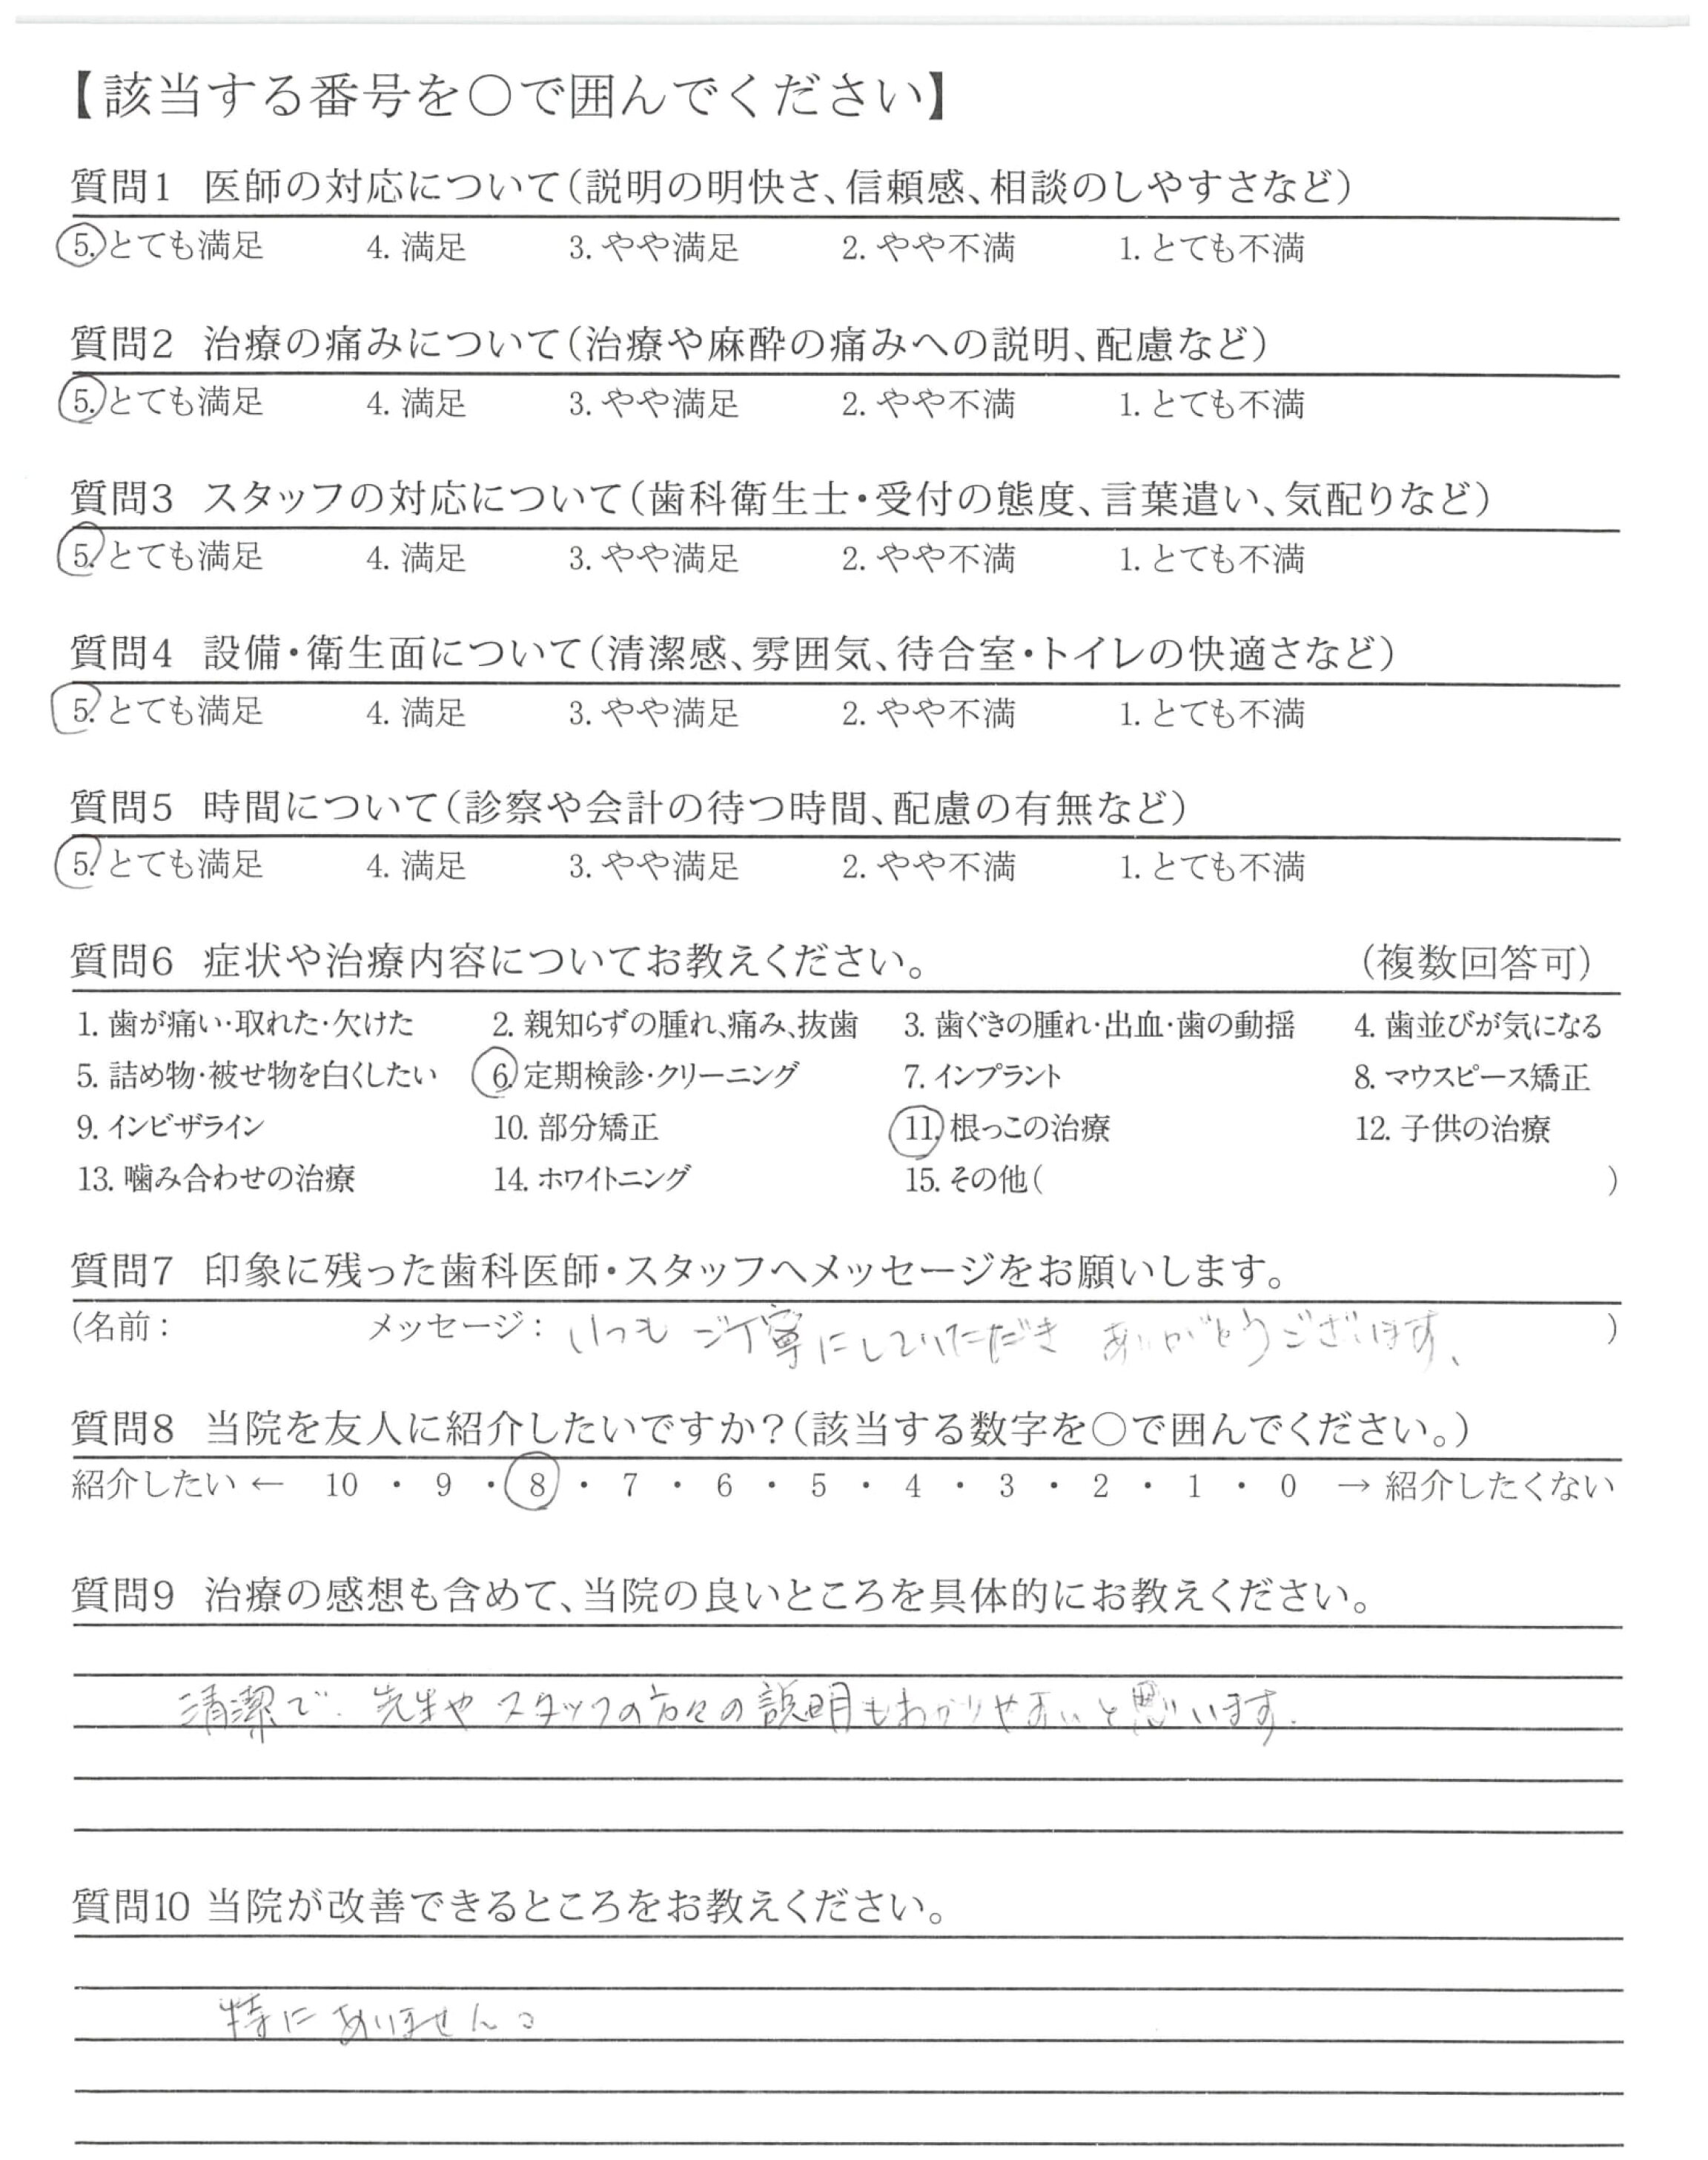 【該当する番号を〇で囲んでください】
質問1 医師の対応について(説明の明快さ、信頼感、相談のしやすさなど)
5. とても満足 4. 満足 3. やや満足 2. やや不満 1. とても不満
質問2 治療の痛みについて(治療や麻酔の痛みへの説明、配慮など)
5. とても満足 4. 満足 3. やや満足 2. やや不満 1. とても不満
質問3 スタッフの対応について(歯科衛生士・受付の態度、言葉遣い、気配りなど)
5. とても満足 4. 満足 3. やや満足 2. やや不満 1. とても不満
質問4 設備・衛生面について(清潔感、雰囲気、待合室・トイレの快適さなど)
5. とても満足 4. 満足 3. やや満足 2. やや不満 1. とても不満
質問5 時間について(診察や会計の待つ時間、配慮の有無など)
5. とても満足 4. 満足 3. やや満足 2. やや不満 1. とても不満
質問6 症状や治療内容についてお教えください。 (複数回答可)
1. 歯が痛い・取れた・欠けた 2. 親知らずの腫れ、痛み、抜歯 3. 歯ぐきの腫れ・出血・歯の動揺 4. 歯並びが気になる
5. 詰め物・被せ物を白くしたい 6. 定期検診・クリーニング 7. インプラント 8. マウスピース矯正
9. インビザライン 10. 部分矯正 11. 根っこの治療 12. 子供の治療
13. 噛み合わせの治療 14. ホワイトニング 15. その他( )
質問7 印象に残った歯科医師・スタッフへメッセージをお願いします。
(名前: メッセージ: いつも ご丁寧にしていただき ありがとうございます、 )
質問8 当院を友人に紹介したいですか?(該当する数字を〇で囲んでください。)
紹介したい ← 10 ・ 9 ・ 8 ・ 7 ・ 6 ・ 5 ・ 4 ・ 3 ・ 2 ・ 1 ・ 0 → 紹介したくない
質問9 治療の感想も含めて、当院の良いところを具体的にお教えください。
清潔で、先生や スタッフの方々の説明もわかりやすいと思います.
質問10 当院が改善できるところをお教えください。
特にありません。